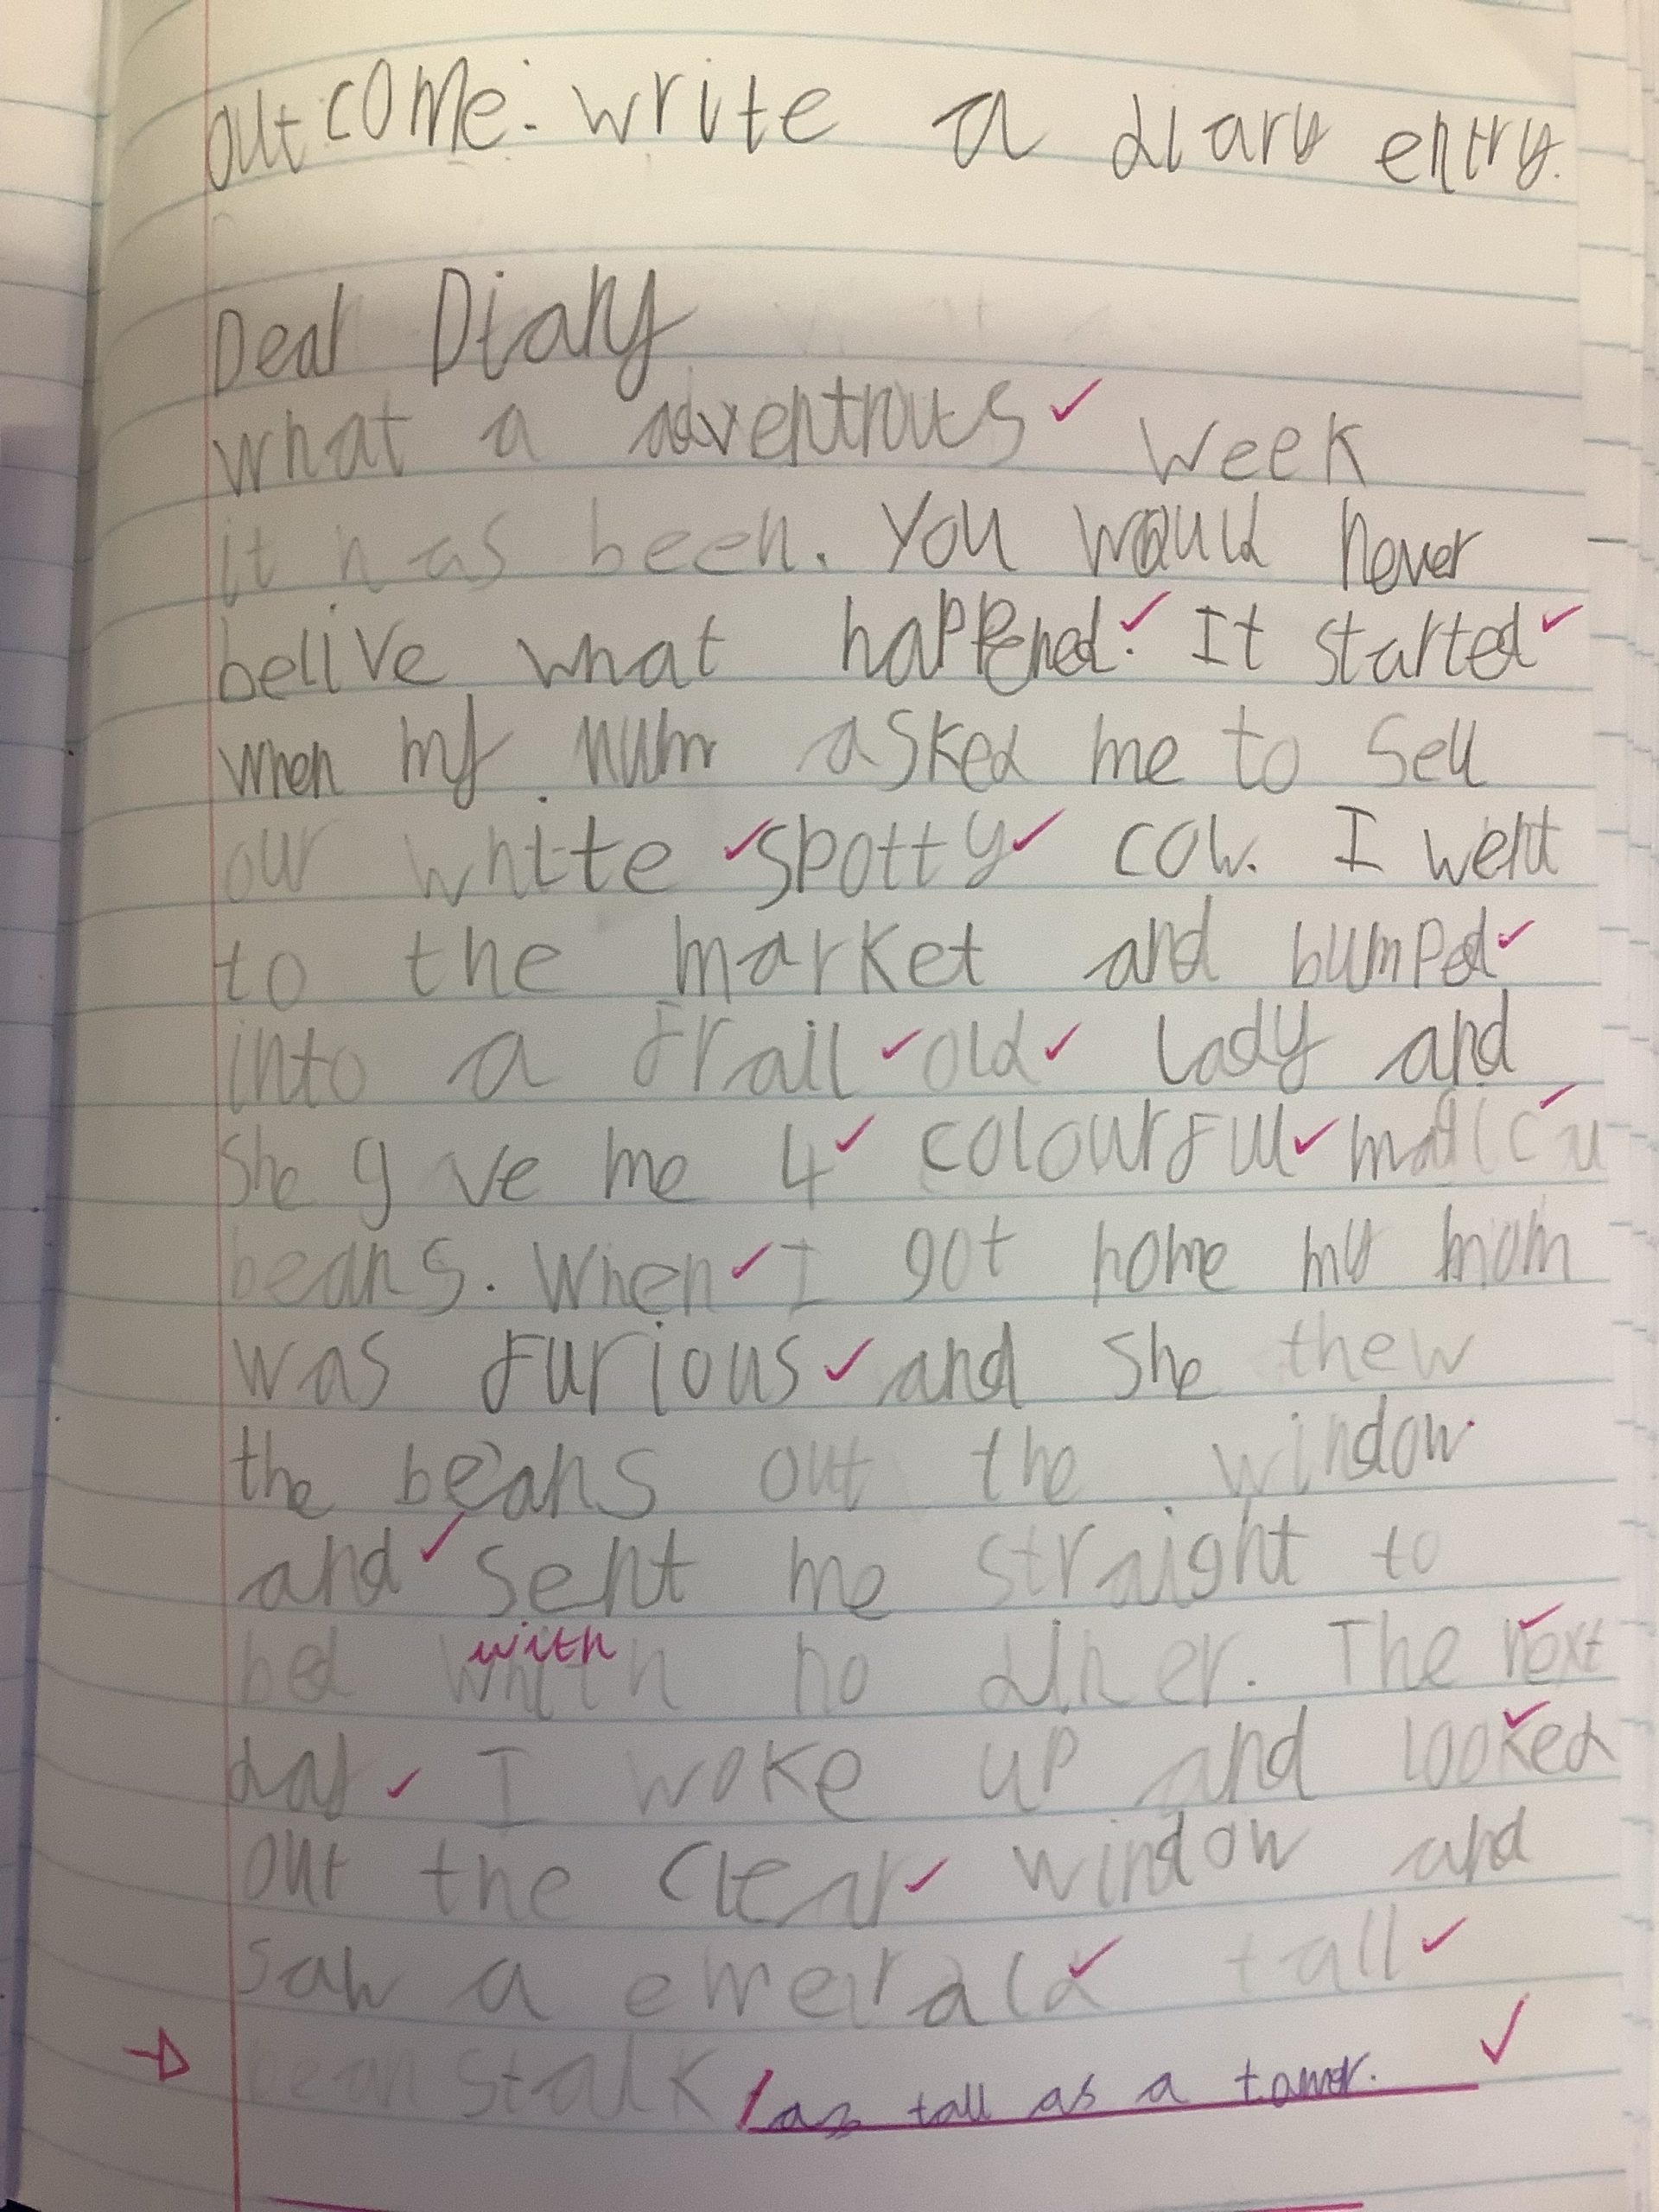 outcome: write a diary entry.
Dear Diary
what a adventrous week
it has been. You would never
belive what happened. It started
when my mum asked me to sell
our white spotty cow. I went
to the market and bumped
into a frail old lady and
she gve me 4 colourful
beans. When I got home my mom
was furious and she thew
the beans out the window
and sent me straight to
with
bed no diner. The next
day I woke up and looked
out the clear window and
saw a emerald tall
bean stalk as tall as a tower.